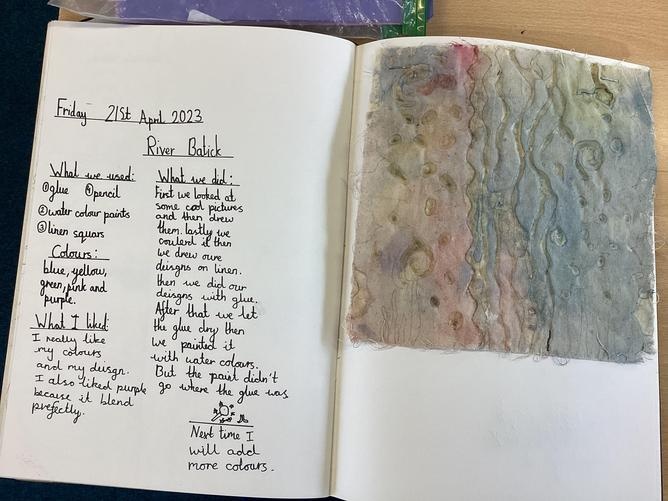 Friday 21st April 2023
River Batick
What we used:
①glue ④pencil
②water colour paints
③linen squars
Colours:
blue, yellow,
green, pink and
purple.
What I liked:
I really like
my colours
and my duisgn.
I also liked purple
because it blend
prefectly.
What we did:
First we looked at
some cool pictures
and then drew
them. lastly we
coulerd it then
we drew oure
deisgns on linen.
then we did our
deisgns with glue.
After that we let
the glue dry then
we painted it
with water colours.
But the paint didn't
go where the glue was
Next time I
will add
more colours.